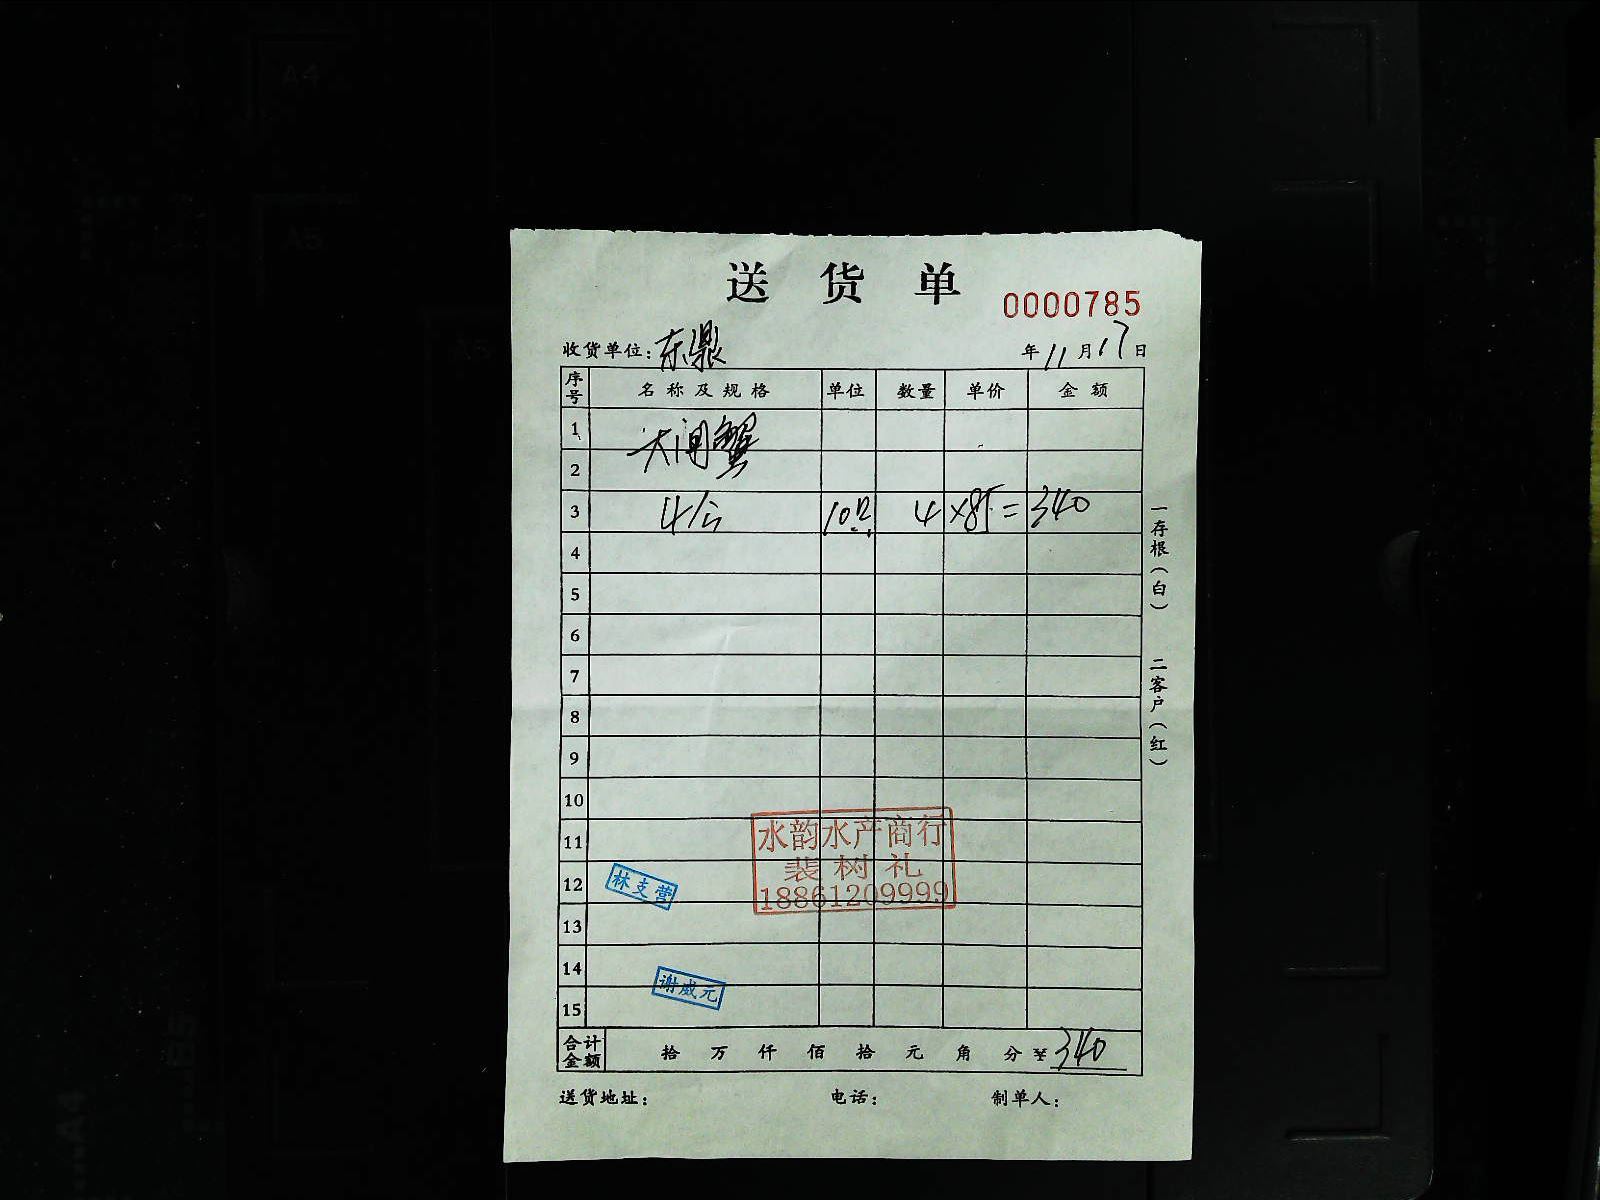 送货单
0000785
收货单位：东鼎 年11月17日
序号 名称及规格 单位 数量 单价 金额
1 大闸蟹
2
3 4/公 10只 4 ×85 = 340
4
5
6
7
8
9
10
11
12
13
14
15
水韵水产商行
裴树礼
18861209999
林支营
谢威元
合计金额 拾 万 仟 佰 拾 元 角 分 ¥340
送货地址： 电话： 制单人：
一存根（白） 二客户（红）
A4
A5
A5
A4